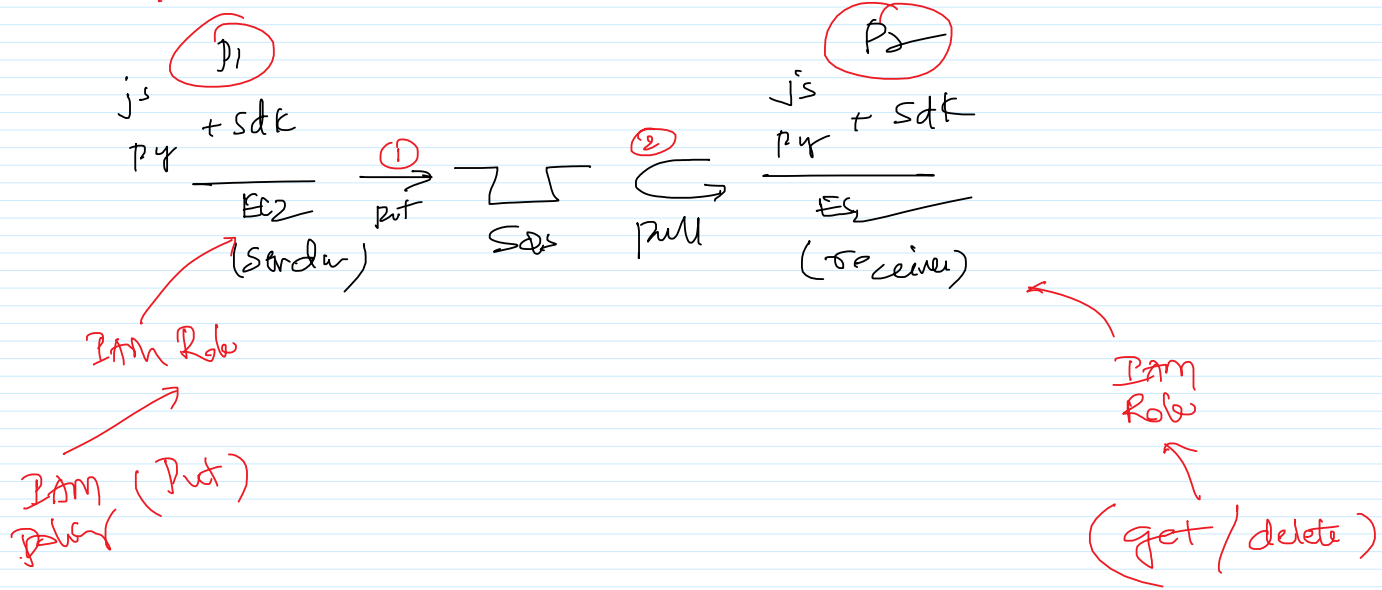 P1
js
+ sdk
py
EC2
(sender)
1
put
SQS
2
pull
P2
js
+ sdk
py
EC2
(receiver)
IAM Role
IAM (Put)
Policy
IAM
Role
(get/delete)